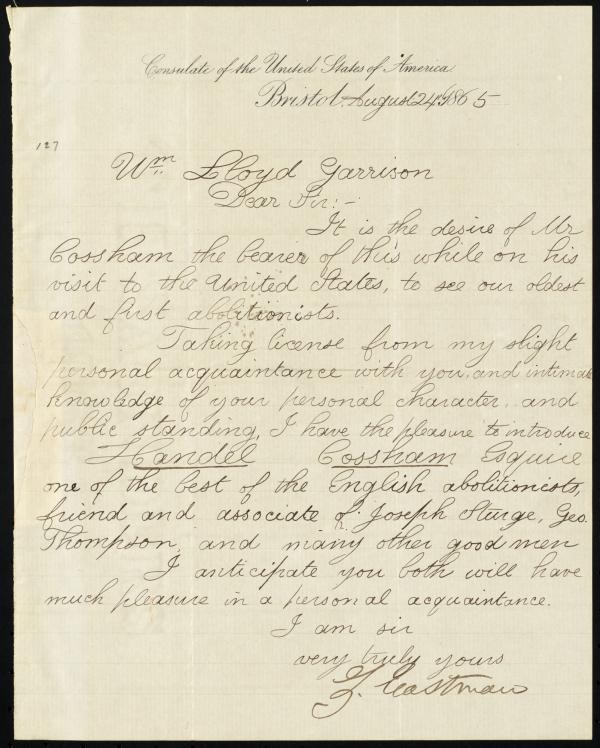 Consulate of the United States of America
Bristol. August 24th 1865
127
Wm. Lloyd Garrison
Dear Sir:-
It is the desire of Mr
Cossham the bearer of this while on his
visit to the United States, to see our oldest
and first abolitionists.
Taking license from my slight
personal acquaintance with you, and intimate
knowledge of your personal character, and
public standing, I have the pleasure to introduce
Handel Cossham Esquire
one of the best of the English abolitionists,
friend and associate of Joseph Sturge, Geo.
Thompson, and many other good men
I anticipate you both will have
much pleasure in a personal acquaintance.
I am sir
very truly yours
Z. Eastman